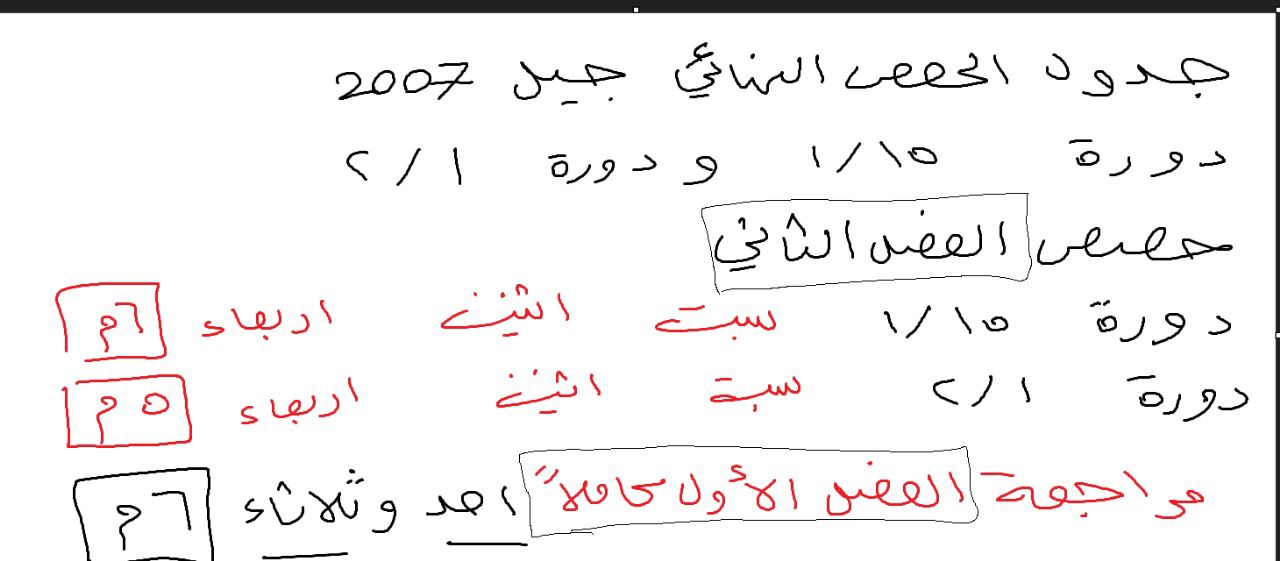 جدول الحصص النهائي جيل 2007
دورة ١/١٥ و دورة ٢/١
حصص الفصل الثاني
دورة ١/١٥ سبت اثنين اربعاء ٦م
دورة ٢/١ سبة اثنين اربعاء ٥م
مراجعة الفصل الأول كاملاً احد وثلاثاء ٦م